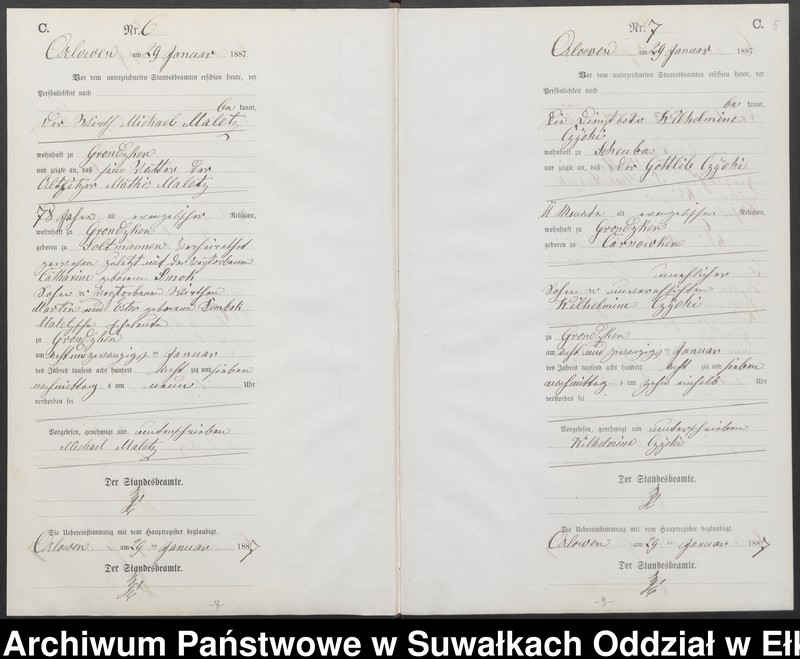 C.
Nr. 6
Orlowen am 29 Januar 1887.
Vor dem unterzeichneten Standesbeamten erschien heute, der
Persönlichkeit nach
be kannt,
der Wirth Michael Maletz
wohnhaft zu Grondzken
und zeigte an, daß sein Vater der
Altsitzer Mathis Maletz
78 Jahre alt evangelischer Religion,
wohnhaft zu Grondzken
geboren zu Soltmannen verheirathet
gewesen zuletzt mit der verstorbenen
Catharine geborene Smok
Sohn der verstorbenen Wirthen
Martin und Ester geborene Dombek
Maletzschen Eheleute
zu Grondzken
am acht und zwanzigsten Januar
des Jahres tausend acht hundert acht zig und sieben
nachmittag s um neun Uhr
verstorben sei
Vorgelesen, genehmigt und unterschrieben
Michael Maletz
Der Standesbeamte.
Die Uebereinstimmung mit dem Hauptregister beglaubigt.
Orlowen am 29 ten Januar 1887
Der Standesbeamte.
-8-
Nr. 7
C. 5
Orlowen am 29 Januar 1887
Vor dem unterzeichneten Standesbeamten erschien heute, der
Persönlichkeit nach
be kannt,
die Dienstbote Wilhelmine
Czÿchi
wohnhaft zu Scheuba
und zeigte an, daß der Gottlieb Czÿchi
11 Monate alt evangelischer Religion,
wohnhaft zu Grondzken
geboren zu Czarnowken
unehlicher
Sohn der unverehelichten
Wilhelmine Czÿchi
zu Grondzken
am acht und zwanzigsten Januar
des Jahres tausend acht hundert acht zig und sieben
nachmittag s um zehn einhalb Uhr
verstorben sei
Vorgelesen, genehmigt und unterschrieben
Wilhelmine Czÿchi
Der Standesbeamte.
Die Uebereinstimmung mit dem Hauptregister beglaubigt.
Orlowen am 29 ten Januar 1887
Der Standesbeamte.
-9-
Archiwum Państwowe w Suwałkach Oddział w Ełk